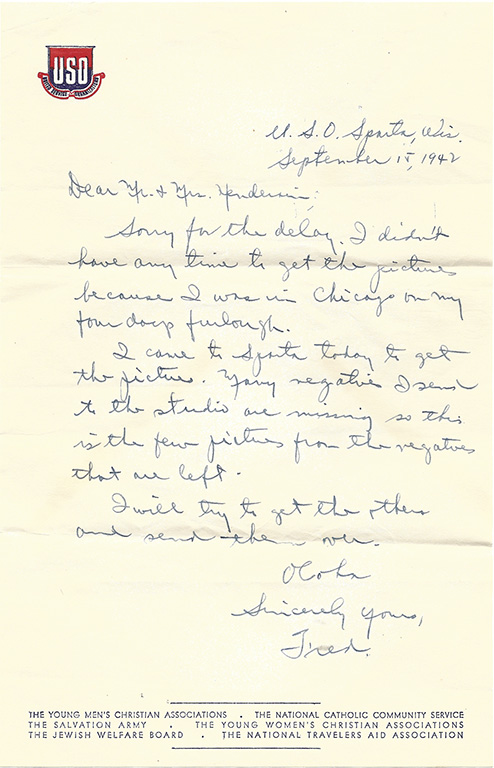 USO
UNITED SERVICE ORGANIZATIONS
U. S. O. Sparta, Wis.
September 15, 1942
Dear Mr. & Mrs.
Sorry for the delay. I didn't
have any time to get the pictures
because I was in Chicago on my
four days furlough.
I came to Sparta today to get
the picture. Many negative I send
to the studio are missing so this
is the few pictures from the negatives
that are left.
I will try to get the others
and send them over.
Aloha
Sincerely yours,
Fred.
THE YOUNG MEN'S CHRISTIAN ASSOCIATIONS . THE NATIONAL CATHOLIC COMMUNITY SERVICE
THE SALVATION ARMY . THE YOUNG WOMEN'S CHRISTIAN ASSOCIATIONS
THE JEWISH WELFARE BOARD . THE NATIONAL TRAVELERS AID ASSOCIATION